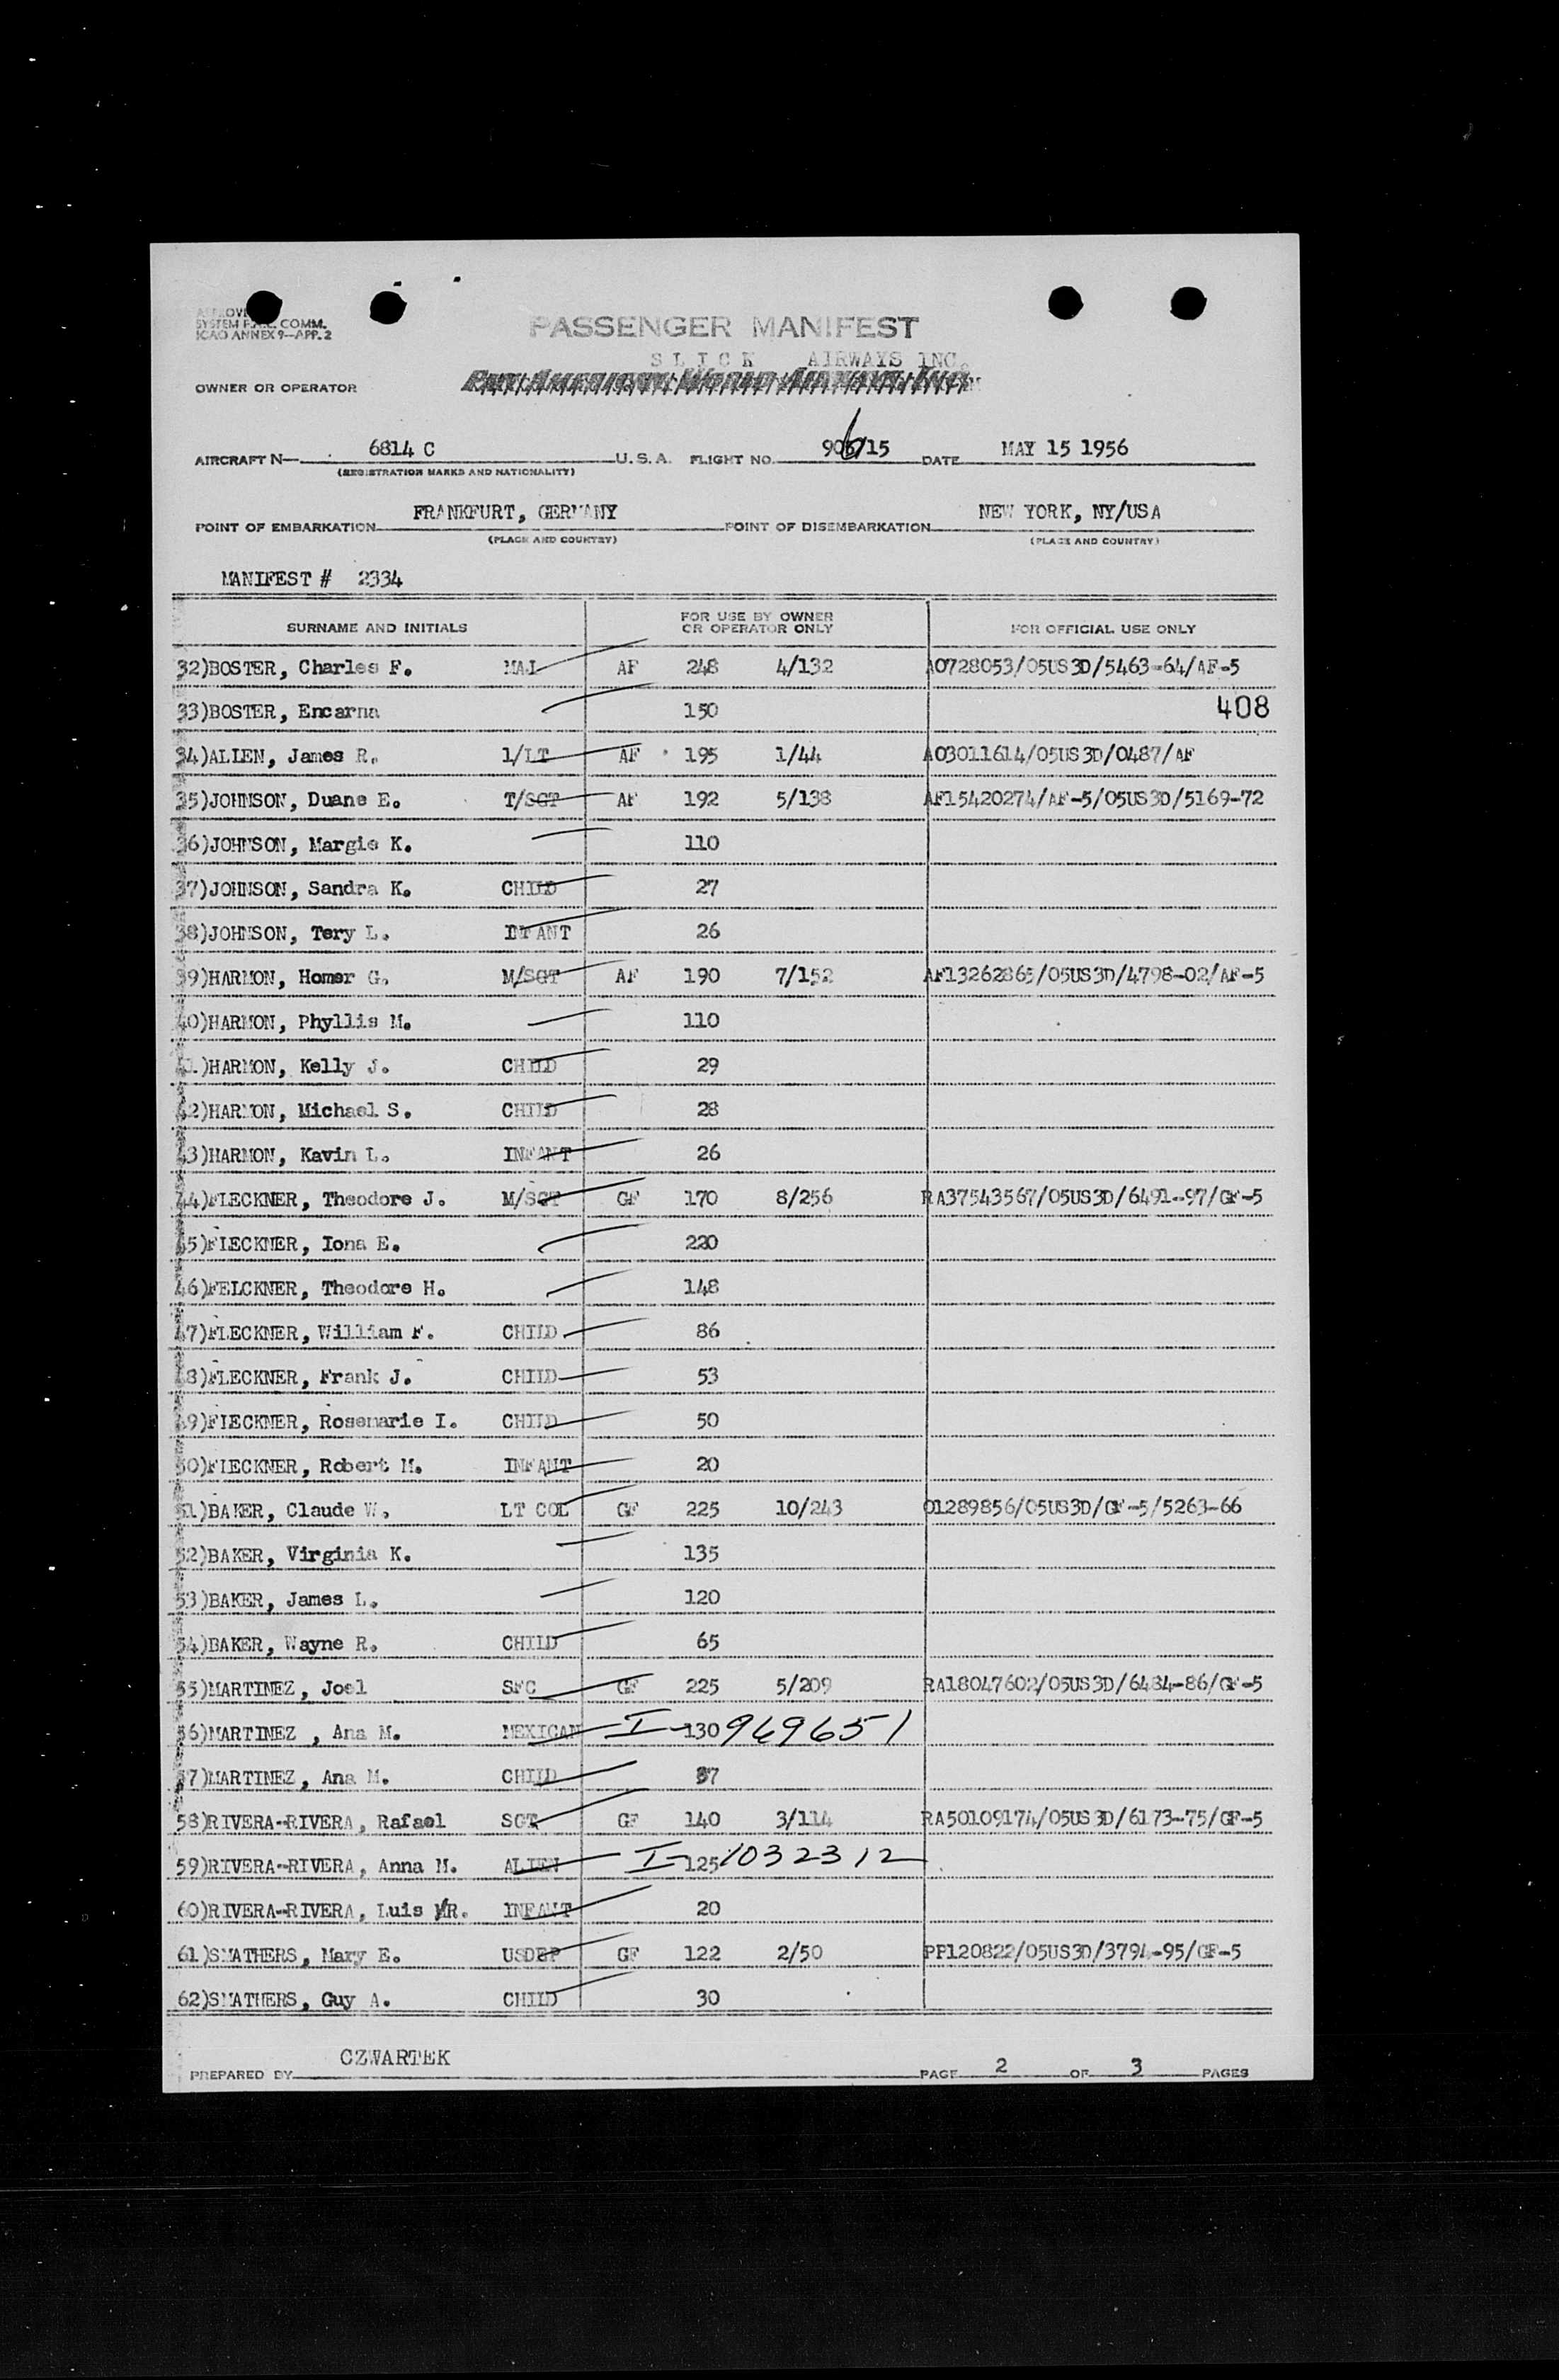 SYSTEM F.A.L. COMM.
ICAO ANNEX 9—APP. 2
PASSENGER MANIFEST
SLICK AIRWAYS INC.
OWNER OR OPERATOR Pan American World Airways, Inc.
AIRCRAFT N— 6814 C U.S.A. FLIGHT NO. 906/15 DATE MAY 15 1956
(REGISTRATION MARKS AND NATIONALITY)
POINT OF EMBARKATION FRANKFURT, GERMANY POINT OF DISEMBARKATION NEW YORK, NY/USA
(PLACE AND COUNTRY) (PLACE AND COUNTRY)
MANIFEST # 2334
SURNAME AND INITIALS FOR USE BY OWNER OR OPERATOR ONLY FOR OFFICIAL USE ONLY
32)BOSTER, Charles F. MAJ AF 248 4/132 AO728053/05US3D/5463-64/AF-5
33)BOSTER, Encarna 150 408
34)ALLEN, James R. 1/LT AF 195 1/44 AO3011614/05US3D/0487/AF
35)JOHNSON, Duane E. T/SGT AF 192 5/138 AF15420274/AF-5/05US3D/5169-72
36)JOHNSON, Margie K. 110
37)JOHNSON, Sandra K. CHILD 27
38)JOHNSON, Tery L. INFANT 26
39)HARMON, Homer G. M/SGT AF 190 7/152 AF13262865/05US3D/4798-02/AF-5
40)HARMON, Phyllis M. 110
41)HARMON, Kelly J. CHILD 29
42)HARMON, Michael S. CHILD 28
43)HARMON, Kavin L. INFANT 26
44)FLECKNER, Theodore J. M/SGT GF 170 8/256 RA37543567/05US3D/6491-97/GF-5
45)FLECKNER, Iona E. 220
46)FELCKNER, Theodore H. 148
47)FLECKNER, William F. CHILD 86
48)FLECKNER, Frank J. CHILD 53
49)FLECKNER, Rosemarie I. CHILD 50
50)FLECKNER, Robert M. INFANT 20
51)BAKER, Claude W. LT COL GF 225 10/243 O1289856/05US3D/GF-5/5263-66
52)BAKER, Virginia K. 135
53)BAKER, James L. 120
54)BAKER, Wayne R. CHILD 65
55)MARTINEZ, Joel SFC GF 225 5/209 RA18047602/05US3D/6484-86/GF-5
56)MARTINEZ , Ana M. MEXICAN I- 130 969651
57)MARTINEZ, Ana M. CHILD 37
58)RIVERA-RIVERA, Rafael SGT GF 140 3/114 RA50109174/05US3D/6173-75/GF-5
59)RIVERA-RIVERA, Anna M. ALIEN I- 125 1032312
60)RIVERA-RIVERA, Luis R. INFANT 20
61)SMATHERS, Mary E. USDEP GF 122 2/50 PP120822/05US3D/3794-95/GF-5
62)SMATHERS, Guy A. CHILD 30
PREPARED BY CZWARTEK PAGE 2 OF 3 PAGES